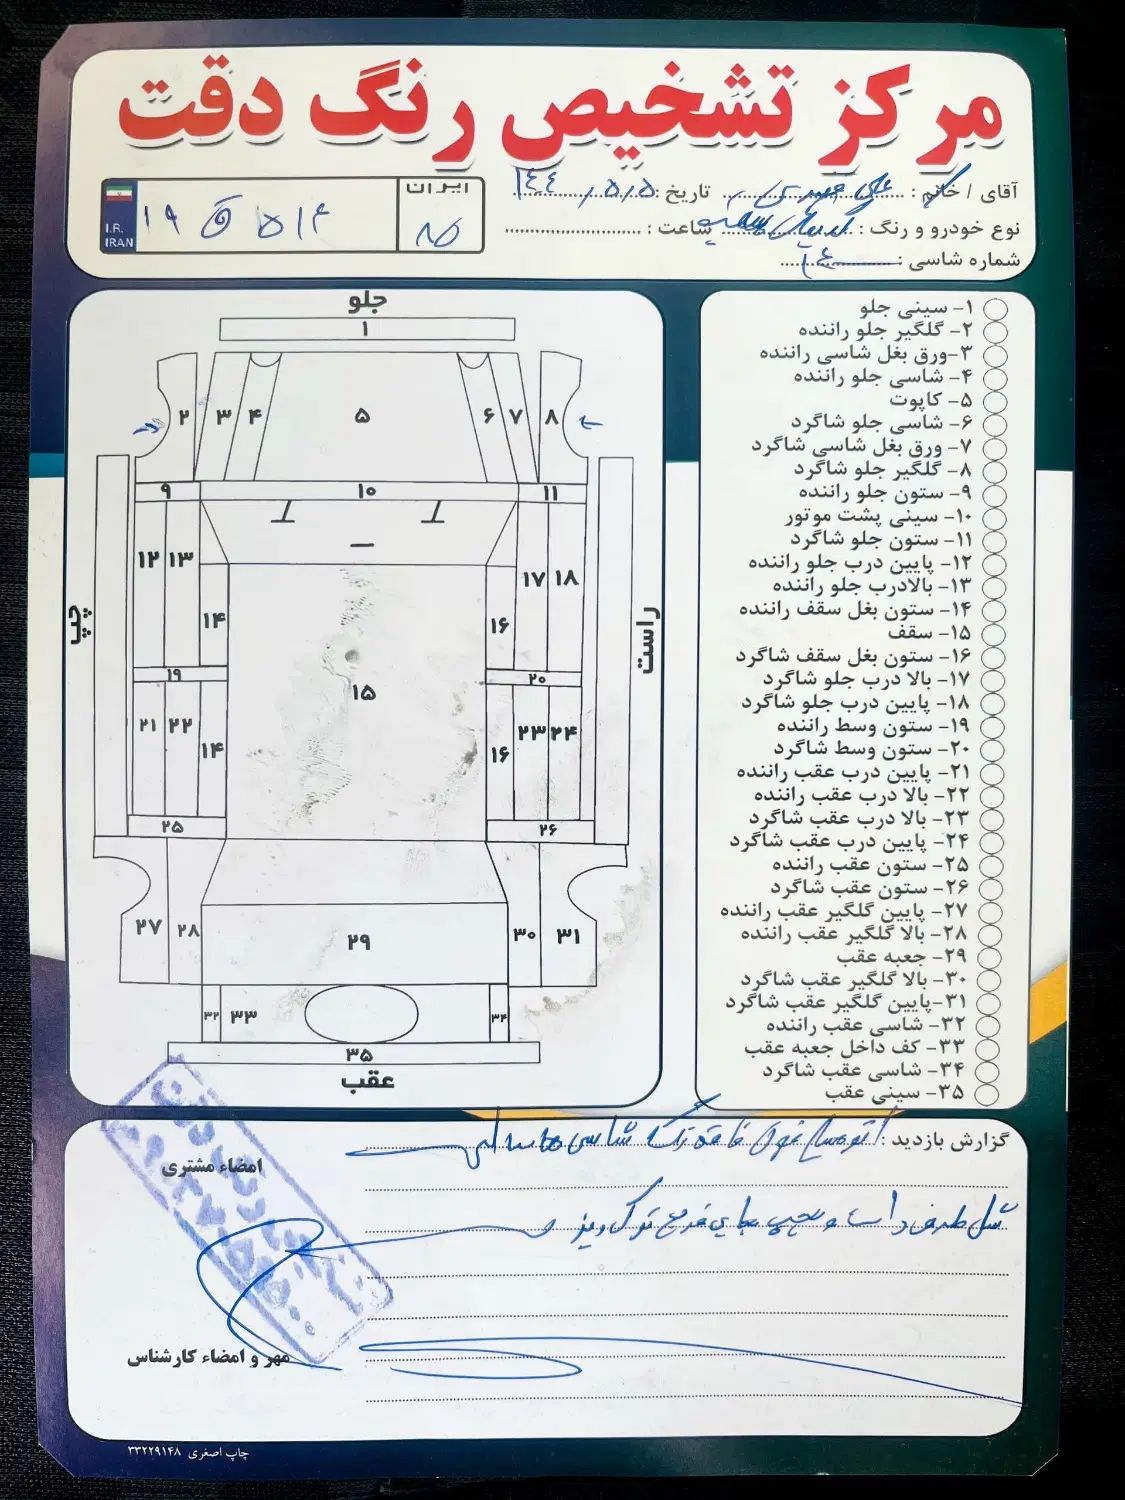 مرکز تشخیص رنگ دقت
آقای / خانم : تاریخ :
نوع خودرو و رنگ : ساعت :
شماره شاسی :
I.R. IRAN
ایران
جلو
۱
۲ ۳ ۴ ۵ ۶ ۷ ۸
۹ ۱۰ ۱۱
۱۲ ۱۳ ۱۷ ۱۸
۱۴ ۱۶
چپ
راست
۱۹ ۲۰
۱۵
۲۱ ۲۲ ۱۴ ۱۶ ۲۳ ۲۴
۲۵ ۲۶
۲۷ ۲۸ ۲۹ ۳۰ ۳۱
۳۲ ۳۳ ۳۴
۳۵
عقب
۱- سینی جلو
۲- گلگیر جلو راننده
۳-ورق بغل شاسی راننده
۴- شاسی جلو راننده
۵- کاپوت
۶- شاسی جلو شاگرد
۷- ورق بغل شاسی شاگرد
۸- گلگیر جلو شاگرد
۹- ستون جلو راننده
۱۰- سینی پشت موتور
۱۱- ستون جلو شاگرد
۱۲- پایین درب جلو راننده
۱۳- بالادرب جلو راننده
۱۴- ستون بغل سقف راننده
۱۵- سقف
۱۶- ستون بغل سقف شاگرد
۱۷- بالا درب جلو شاگرد
۱۸- پایین درب جلو شاگرد
۱۹- ستون وسط راننده
۲۰- ستون وسط شاگرد
۲۱- پایین درب عقب راننده
۲۲- بالا درب عقب راننده
۲۳- بالا درب عقب شاگرد
۲۴- پایین درب عقب شاگرد
۲۵- ستون عقب راننده
۲۶- ستون عقب شاگرد
۲۷- پایین گلگیر عقب راننده
۲۸- بالا گلگیر عقب راننده
۲۹- جعبه عقب
۳۰- بالا گلگیر عقب شاگرد
۳۱-پایین گلگیر عقب شاگرد
۳۲- شاسی عقب راننده
۳۳- کف داخل جعبه عقب
۳۴- شاسی عقب شاگرد
۳۵- سینی عقب
گزارش بازدید : فاقد رنگ شاسی ها سالم
گل طرف راست و چپ جای
امضاء مشتری
مهر و امضاء کارشناس
چاپ اصغری ۳۳۲۲۹۱۴۸